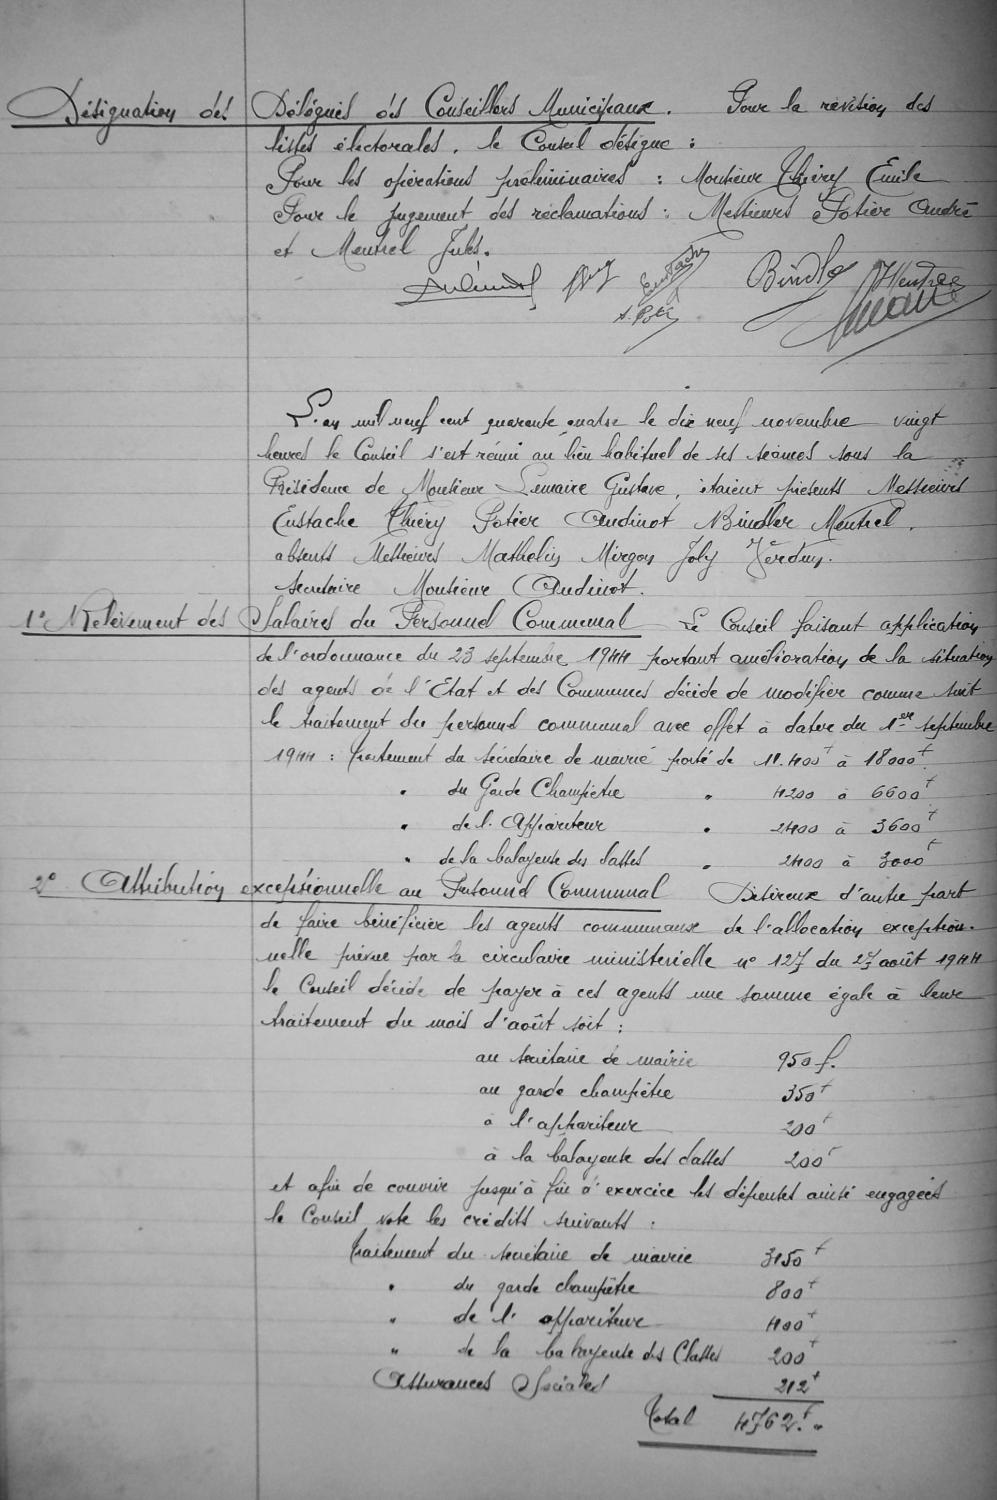 Désignation des Délégués des Conseillers Municipaux. Pour la révision des
listes électorales, le Conseil désigne :
Pour les opérations préliminaires : Monsieur Thiéry Emile
Pour le jugement des réclamations : Messieurs Potier André
et Meutrel Jules.
Eustache Bindler
A. Potier
L'an mil neuf cent quarante quatre le dix neuf novembre vingt
heures le Conseil s'est réuni au lieu habituel de ses séances sous la
Présidence de Monsieur Lemaire Gustave, étaient présents Messieurs
Eustache Thiéry Potier Audinot Bindler Meutrel.
absents Messieurs Mathelin Mirgon Joly Verdun.
secrétaire Monsieur Audinot.
1° Relèvement des Salaires du Personnel Communal Le Conseil faisant application
de l'ordonnance du 23 septembre 1944 portant amélioration de la situation
des agents de l'Etat et des Communes décide de modifier comme suit
le traitement du personnel communal avec effet à dater du 1er septembre
1944 : traitement du secrétaire de mairie porté de 11.400f à 18000f.
" du Garde Champêtre " 4200 à 6600f
" de l'Appariteur " 2400 à 3600f
" de la balayeuse des classes " 2400 à 3000f
2° Attribution exceptionnelle au Personnel Communal Désireux d'autre part
de faire bénéficier les agents communaux de l'allocation exception-
nelle prévue par la circulaire ministérielle n° 127 du 27 août 1944
le Conseil décide de payer à ces agents une somme égale à leur
traitement du mois d'août soit :
au secrétaire de mairie 950 f.
au garde champêtre 350f
à l'appariteur 200f
à la balayeuse des classes 200f
et afin de couvrir jusqu'à fin d'exercice les dépenses ainsi engagées
le Conseil vote les crédits suivants :
Traitement du secrétaire de mairie 3150f
" du garde champêtre 800f
" de l'appariteur 400f
" de la balayeuse des Classes 200f
Assurances Sociales 212f
Total 4762f.